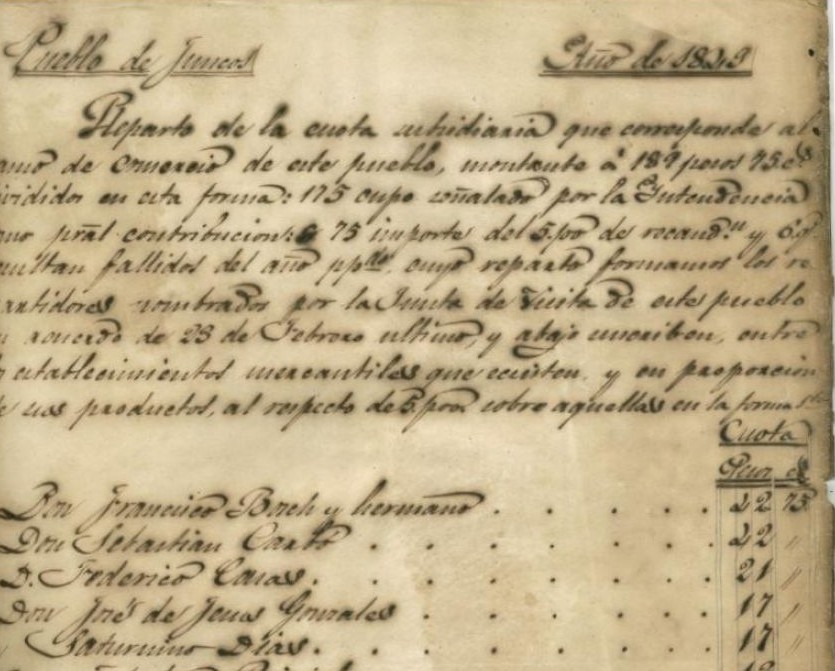 Pueblo de Juncos
Año de 1849
Reparto de la cuota subsidiaria que corresponde al
amo de comercio de este pueblo, montante á 189 pesos 75 cs
ivididos en esta forma: 175 cupo señalado por la Intendencia
mo pral contribucion: 8 75 importe del 5 poo de recaudn y 6 q
sultan fallidos del año ppdo, cuyo reparto formamos los re
artidores nombrados por la Junta de Visita de este pueblo
acuerdo de 23 de Febrero ultimo, y abajo suscriben, entre
s establecimientos mercantiles que ecsisten, y en proporcion
e sus productos, al respecto de 5 poo sobre aquellas en la forma
Cuota
Pesos cs
Don Francisco Bosch y hermano . . . . . . 22 75
Don Sebastian Cantó . . . . . . . 22 "
D. Federico Casas . . . . . . . 21 "
Don José de Jesus Gonzales . . . . . . 17 "
" Saturnino Dias . . . . . . . 17 "